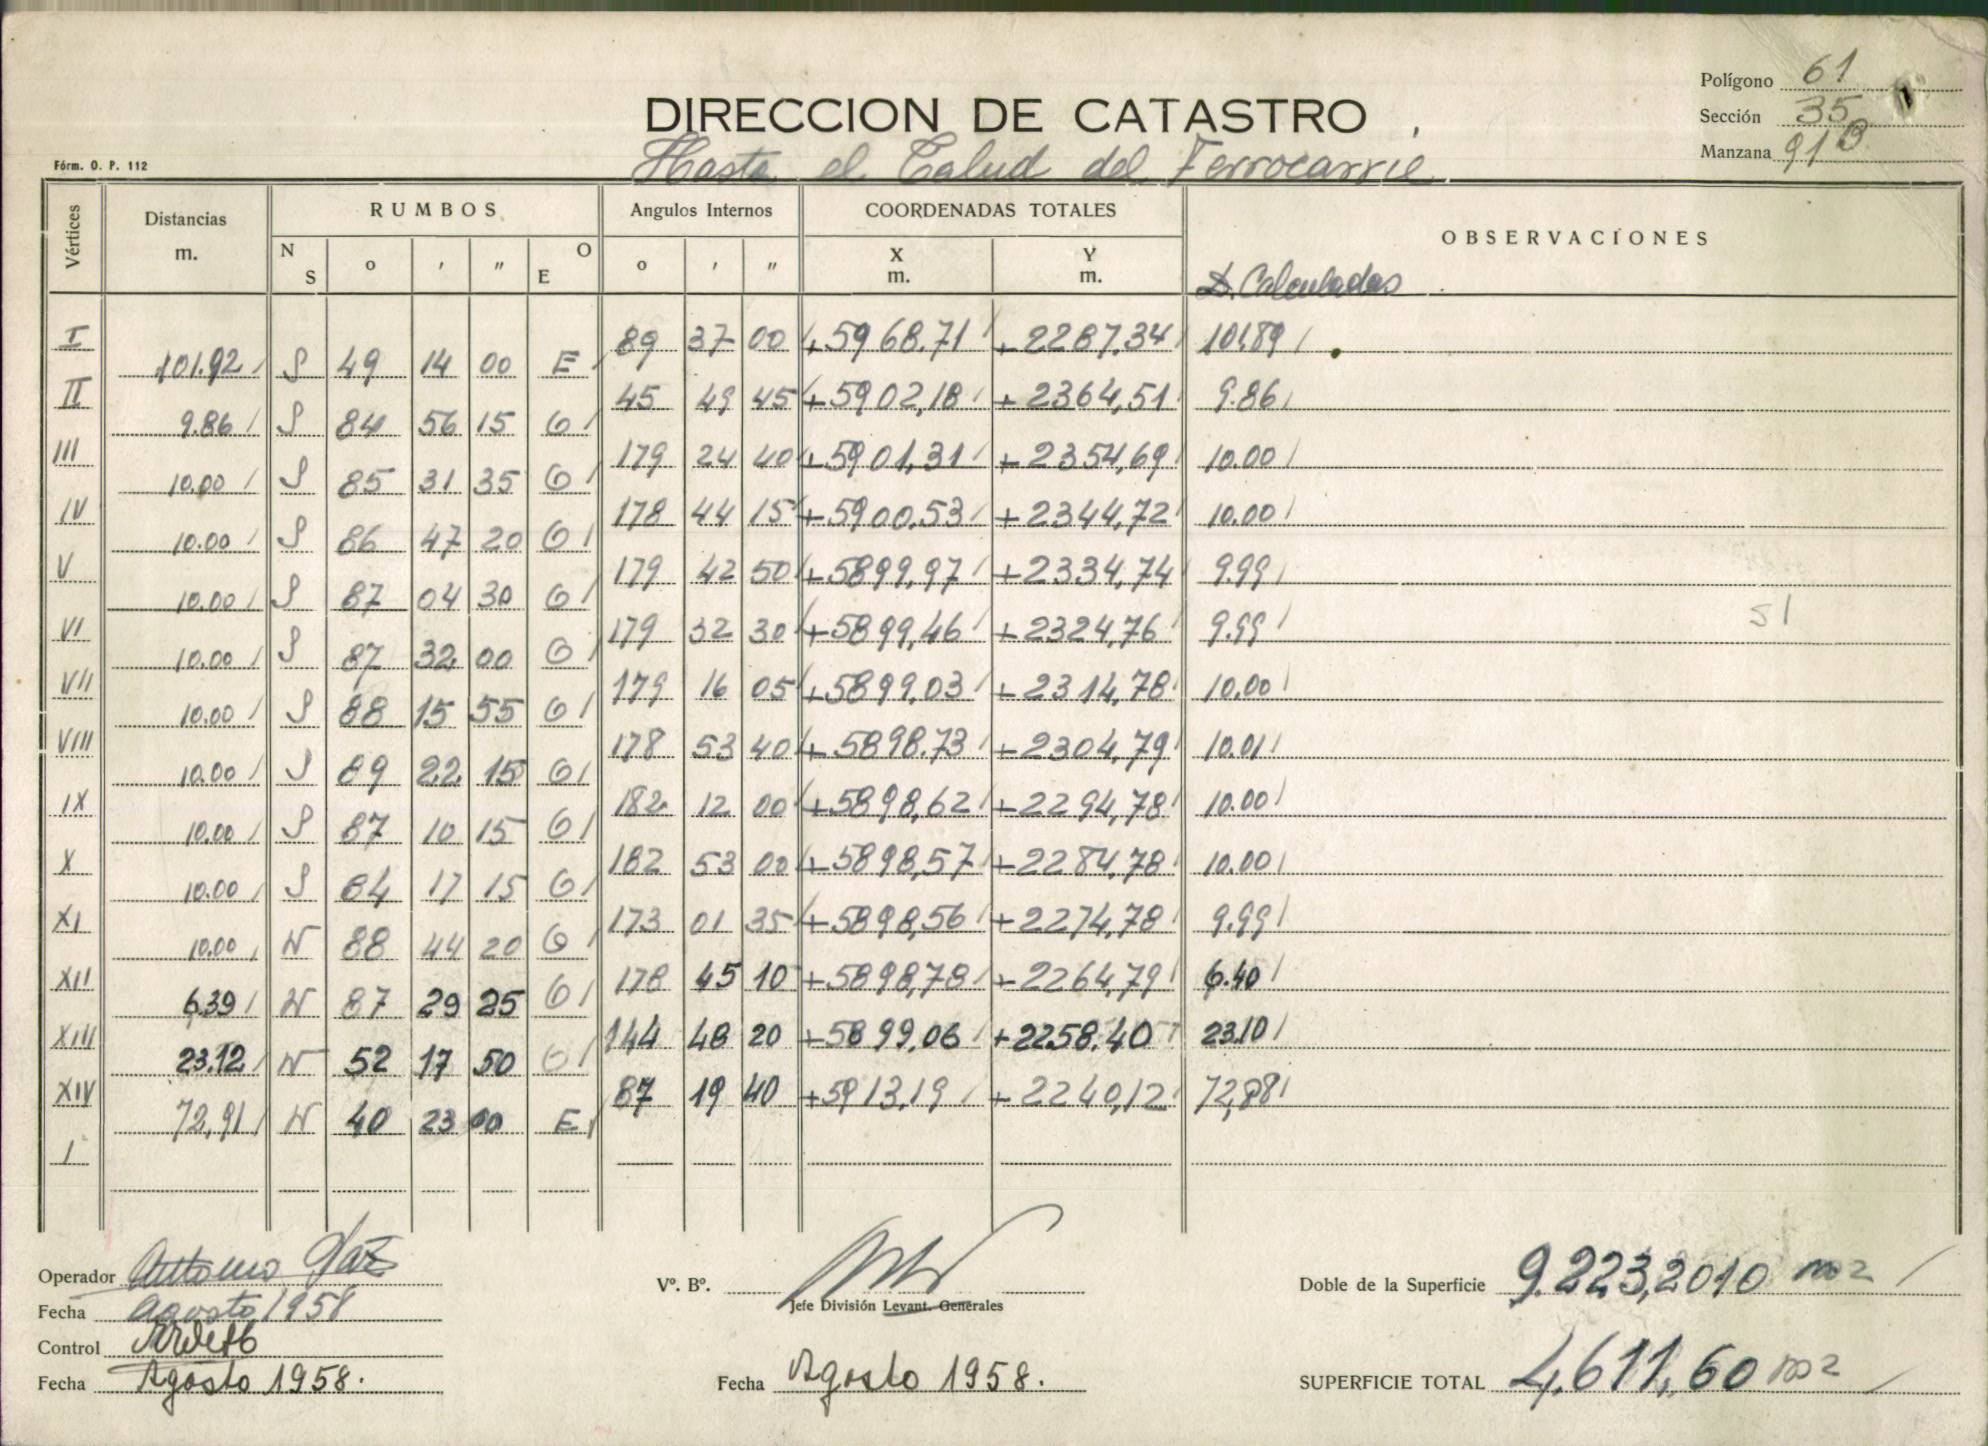 Polígono 61
DIRECCION DE CATASTRO
Sección 35
Manzana 91B
Fórm. O. P. 112
Hasta el Talud del Ferrocarril
Vértices Distancias m. RUMBOS N S o ' " E O Angulos Internos o ' " COORDENADAS TOTALES X m. Y m. OBSERVACIONES
D. Calculadas
I 89 37 00 +5968.71 +2287.34 101.89
101.92 S 49 14 00 E
II 45 49 45 +5902,18 +2364,51 9.86
9.86 S 84 56 15 O
III 179 24 40 +5901,31 +2354,69 10.00
10.00 S 85 31 35 O
IV 178 44 15 +5900.53 +2344,72 10.00
10.00 S 86 47 20 O
V 179 42 50 +5899,97 +2334,74 9.99
10.00 S 87 04 30 O
VI 179 32 30 +5899,46 +2324,76 9.99 51
10.00 S 87 32 00 O
VII 179 16 05 +5899,03 +2314,78 10.00
10.00 S 88 15 55 O
VIII 178 53 40 +5898.73 +2304,79 10.01
10.00 S 89 22 15 O
IX 182 12 00 +5898,62 +2294,78 10.00
10.00 S 87 10 15 O
X 182 53 00 +5898,57 +2284,78 10.00
10.00 S 84 17 15 O
XI 173 01 35 +5898,56 +2274,78 9.99
10.00 N 88 44 20 O
XII 178 45 10 +5898,78 +2264,79 6.40
6.39 N 87 29 25 O
XIII 144 48 20 +5899,06 +2258.40 23.10
23.12 N 52 17 50 O
XIV 87 19 40 +5913.19 +2240,12 72,88
72,91 N 40 23 00 E
I
Operador Antonio Vaz
Fecha agosto 1958
Control
Fecha Agosto 1958.
Vº. Bº.
Jefe División Levant. Generales
Fecha Agosto 1958.
Doble de la Superficie 9.223,2010 m2
SUPERFICIE TOTAL 4,611,60 m2